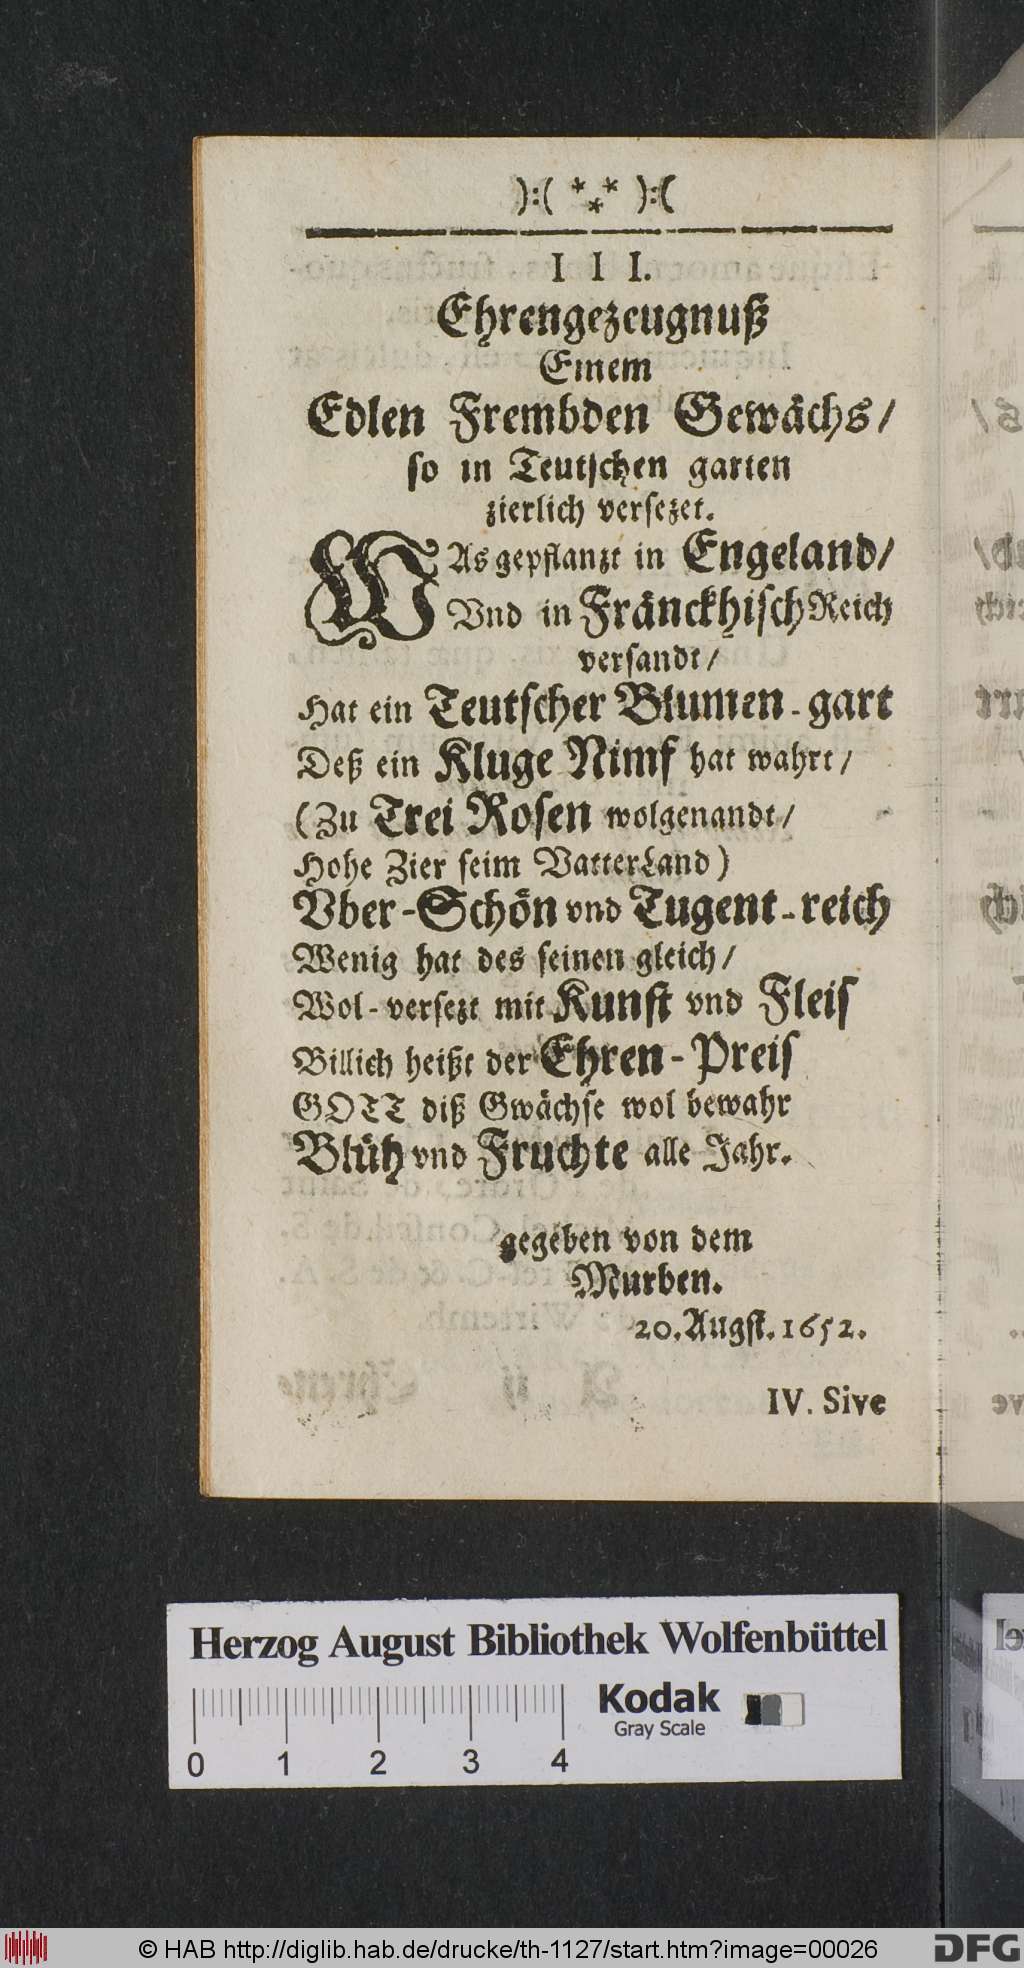 ):( *** ):(
I I I.
Ehrengezeugnuß
Einem
Edlen Frembden Gewächs/
so in Teutschen garten
zierlich versezet.
WAs gepflanzt in Engeland/
Vnd in Fränckhisch Reich
versandt/
Hat ein Teutscher Blumen-gart
Deß ein Kluge Nimf hat wahrt/
(Zu Trei Rosen wolgenandt/
Hohe Zier seim VatterLand)
Vber-Schön vnd Tugent-reich
Wenig hat des seinen gleich/
Wol-versezt mit Kunst vnd Fleis
Billich heißt der Ehren-Preis
GOTT diß Gwächse wol bewahr
Blüh vnd Fruchte alle Jahr.
gegeben von dem
Murben.
20. Augst. 1652.
IV. Sive
Herzog August Bibliothek Wolfenbüttel
Kodak
Gray Scale
0 1 2 3 4
© HAB http://diglib.hab.de/drucke/th-1127/start.htm?image=00026
DFG